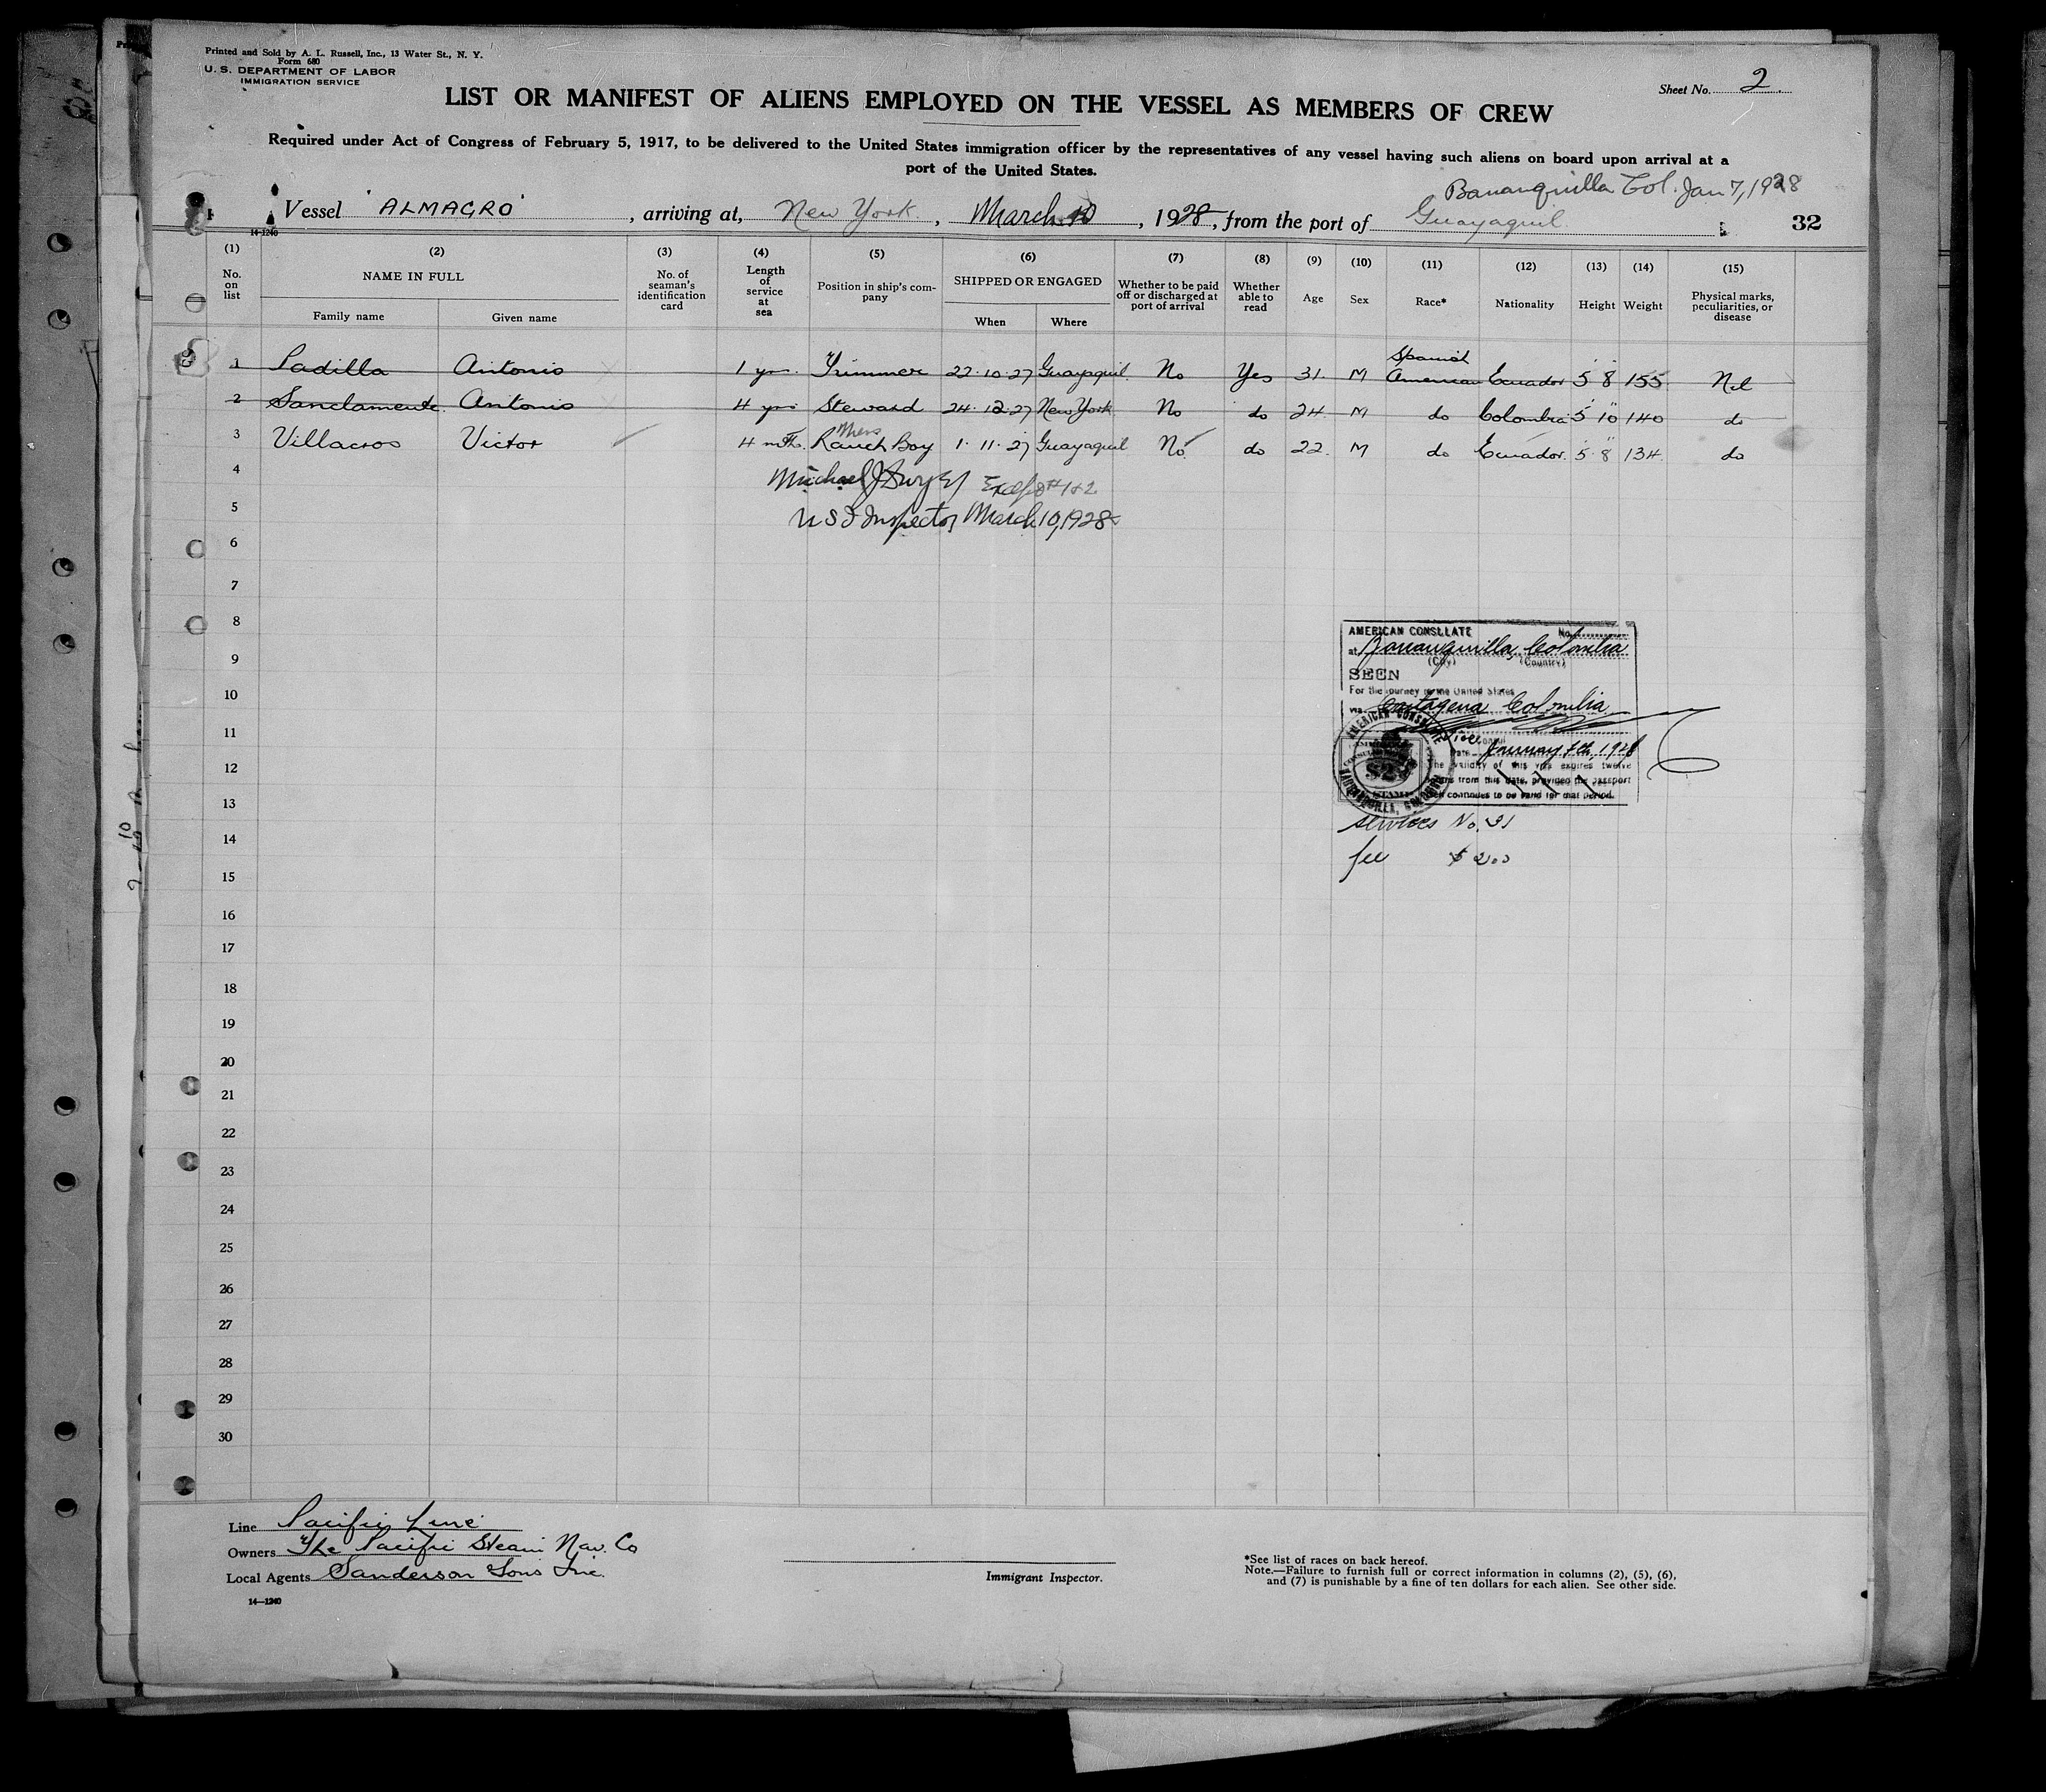 Printed and Sold by A. L. Russell, Inc., 13 Water St., N. Y.
Form 680
U. S. DEPARTMENT OF LABOR
IMMIGRATION SERVICE
Sheet No. 2
LIST OR MANIFEST OF ALIENS EMPLOYED ON THE VESSEL AS MEMBERS OF CREW
Required under Act of Congress of February 5, 1917, to be delivered to the United States immigration officer by the representatives of any vessel having such aliens on board upon arrival at a
port of the United States.
Barranquilla Col. Jan 7, 1928
Vessel "ALMAGRO", arriving at, New York, March 10, 1928, from the port of Guayaquil 32
14-1240
(1) (2) (3) (4) (5) (6) (7) (8) (9) (10) (11) (12) (13) (14) (15)
No. on list NAME IN FULL No. of seaman's identification card Length of service at sea Position in ship's company SHIPPED OR ENGAGED Whether to be paid off or discharged at port of arrival Whether able to read Age Sex Race* Nationality Height Weight Physical marks, peculiarities, or disease
Family name Given name When Where
1 Padilla Antonio 1 yr. Trimmer 22.10.27 Guayaquil No Yes 31 M Spanish American Ecuador 5' 8" 155 Nil
2 Sanclamente Antonio 4 yrs Steward 24.12.27 New York No do 24 M do Colombia 5' 10" 140 do
3 Villacros Victor 4 mths. Mess Boy 1.11.27 Guayaquil No do 22 M do Ecuador 5' 8" 134 do
4 Michael J Dwyer Except #1+2
5 U S I Inspector March 10, 1928
6
7
8
9
10
11
12
13
14
15
16
17
18
19
20
21
22
23
24
25
26
27
28
29
30
AMERICAN CONSULATE No.
at Barranquilla, Colombia
(City) (Country)
SEEN
For the journey to the United States
via Cartagena Colombia
Vice Consul
Date January 7th, 1928
The validity of this visa expires twelve
from this date, provided the passport
continues to be valid for that period.
AMERICAN CONSULATE
BARRANQUILLA, COLOMBIA
$2
services No. 31
fee $2.00
Line Pacific Line
Owners The Pacific Steam Nav. Co
Local Agents Sanderson & Sons Inc.
14—1240
Immigrant Inspector.
*See list of races on back hereof.
Note.—Failure to furnish full or correct information in columns (2), (5), (6),
and (7) is punishable by a fine of ten dollars for each alien. See other side.